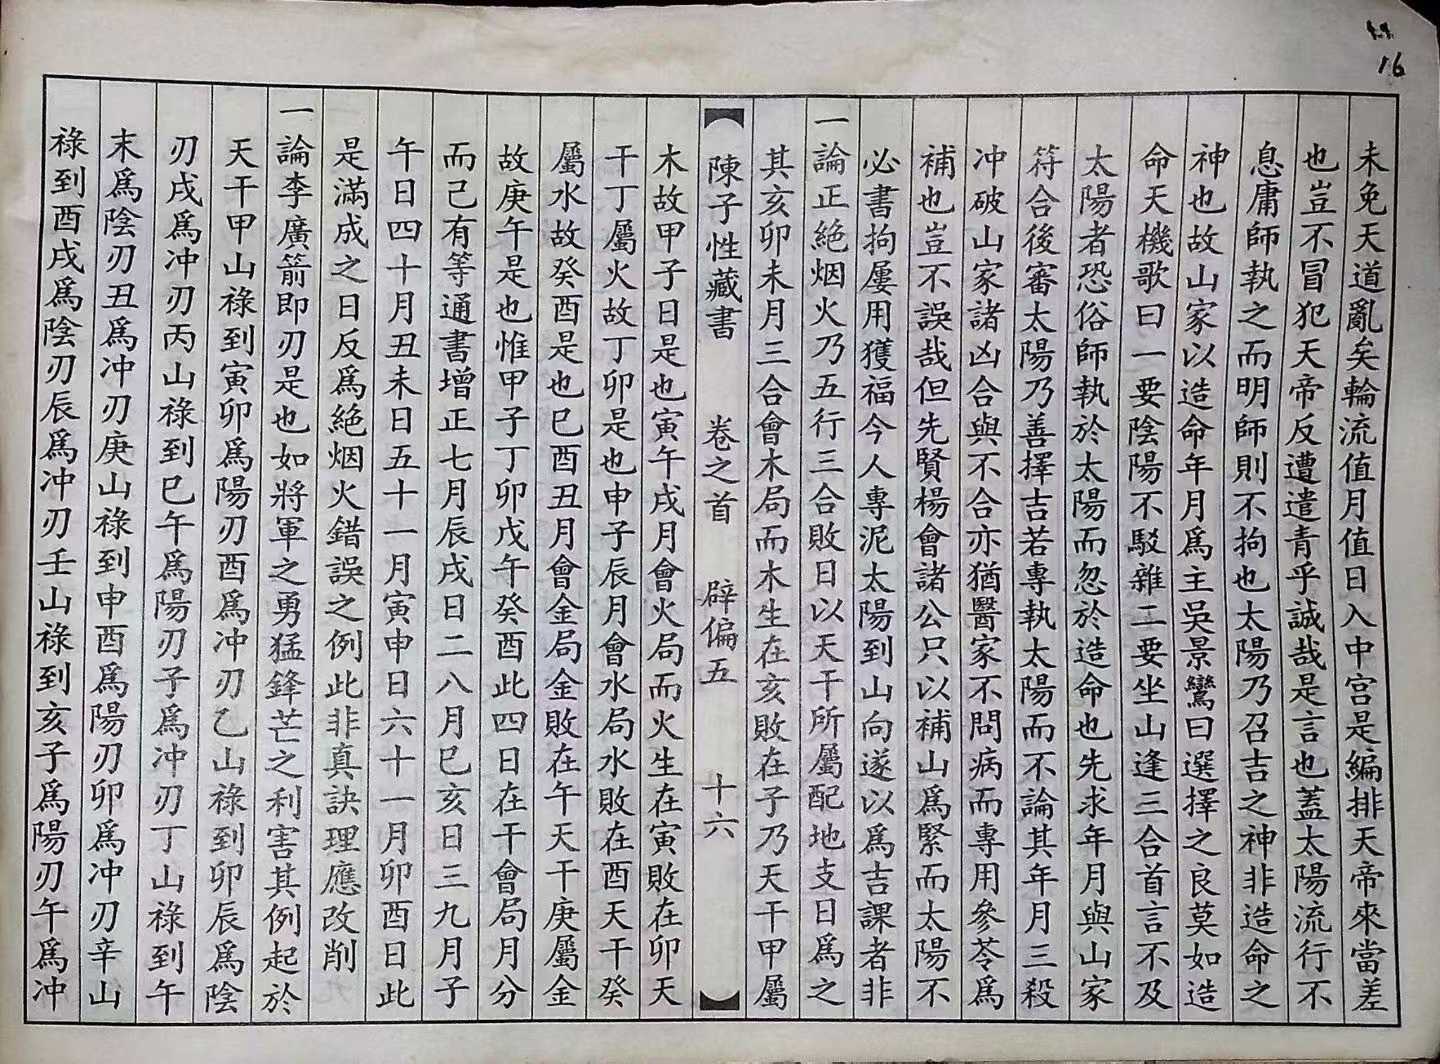 16
未免天道亂矣輪流值月值日入中宮是編排天帝來當差
也豈不冒犯天帝反遭遣青乎誠哉是言也蓋太陽流行不
息庸師執之而明師則不拘也太陽乃召吉之神非造命之
神也故山家以造命年月為主吳景鸞曰選擇之良莫如造
命天機歌曰一要陰陽不駁雜二要坐山逢三合首言不及
太陽者恐俗師執於太陽而忽於造命也先求年月與山家
符合後審太陽乃善擇吉若專執太陽而不論其年月三殺
冲破山家諸凶合與不合亦猶醫家不問病而專用參苓為
補也豈不誤哉但先賢楊會諸公只以補山為緊而太陽不
必書拘屢用獲福今人專泥太陽到山向遂以為吉課者非
一論正絶烟火乃五行三合敗日以天干所屬配地支日為之
其亥卯未月三合會木局而木生在亥敗在子乃天干甲屬
陳子性藏書 卷之首 辟偏五 十六
木故甲子日是也寅午戌月會火局而火生在寅敗在卯天
干丁屬火故丁卯是也申子辰月會水局水敗在酉天干癸
屬水故癸酉是也巳酉丑月會金局金敗在午天干庚屬金
故庚午是也惟甲子丁卯戊午癸酉此四日在干會局月分
而己有等通書增正七月辰戌日二八月巳亥日三九月子
午日四十月丑未日五十一月寅申日六十一月卯酉日此
是滿成之日反為絶烟火錯誤之例此非真訣理應改削
一論李廣箭即刃是也如將軍之勇猛鋒芒之利害其例起於
天干甲山祿到寅卯為陽刃酉為冲刃乙山祿到卯辰為陰
刃戌為冲刃丙山祿到巳午為陽刃子為冲刃丁山祿到午
末為陰刃丑為冲刃庚山祿到申酉為陽刃卯為冲刃辛山
祿到酉戌為陰刃辰為冲刃壬山祿到亥子為陽刃午為冲